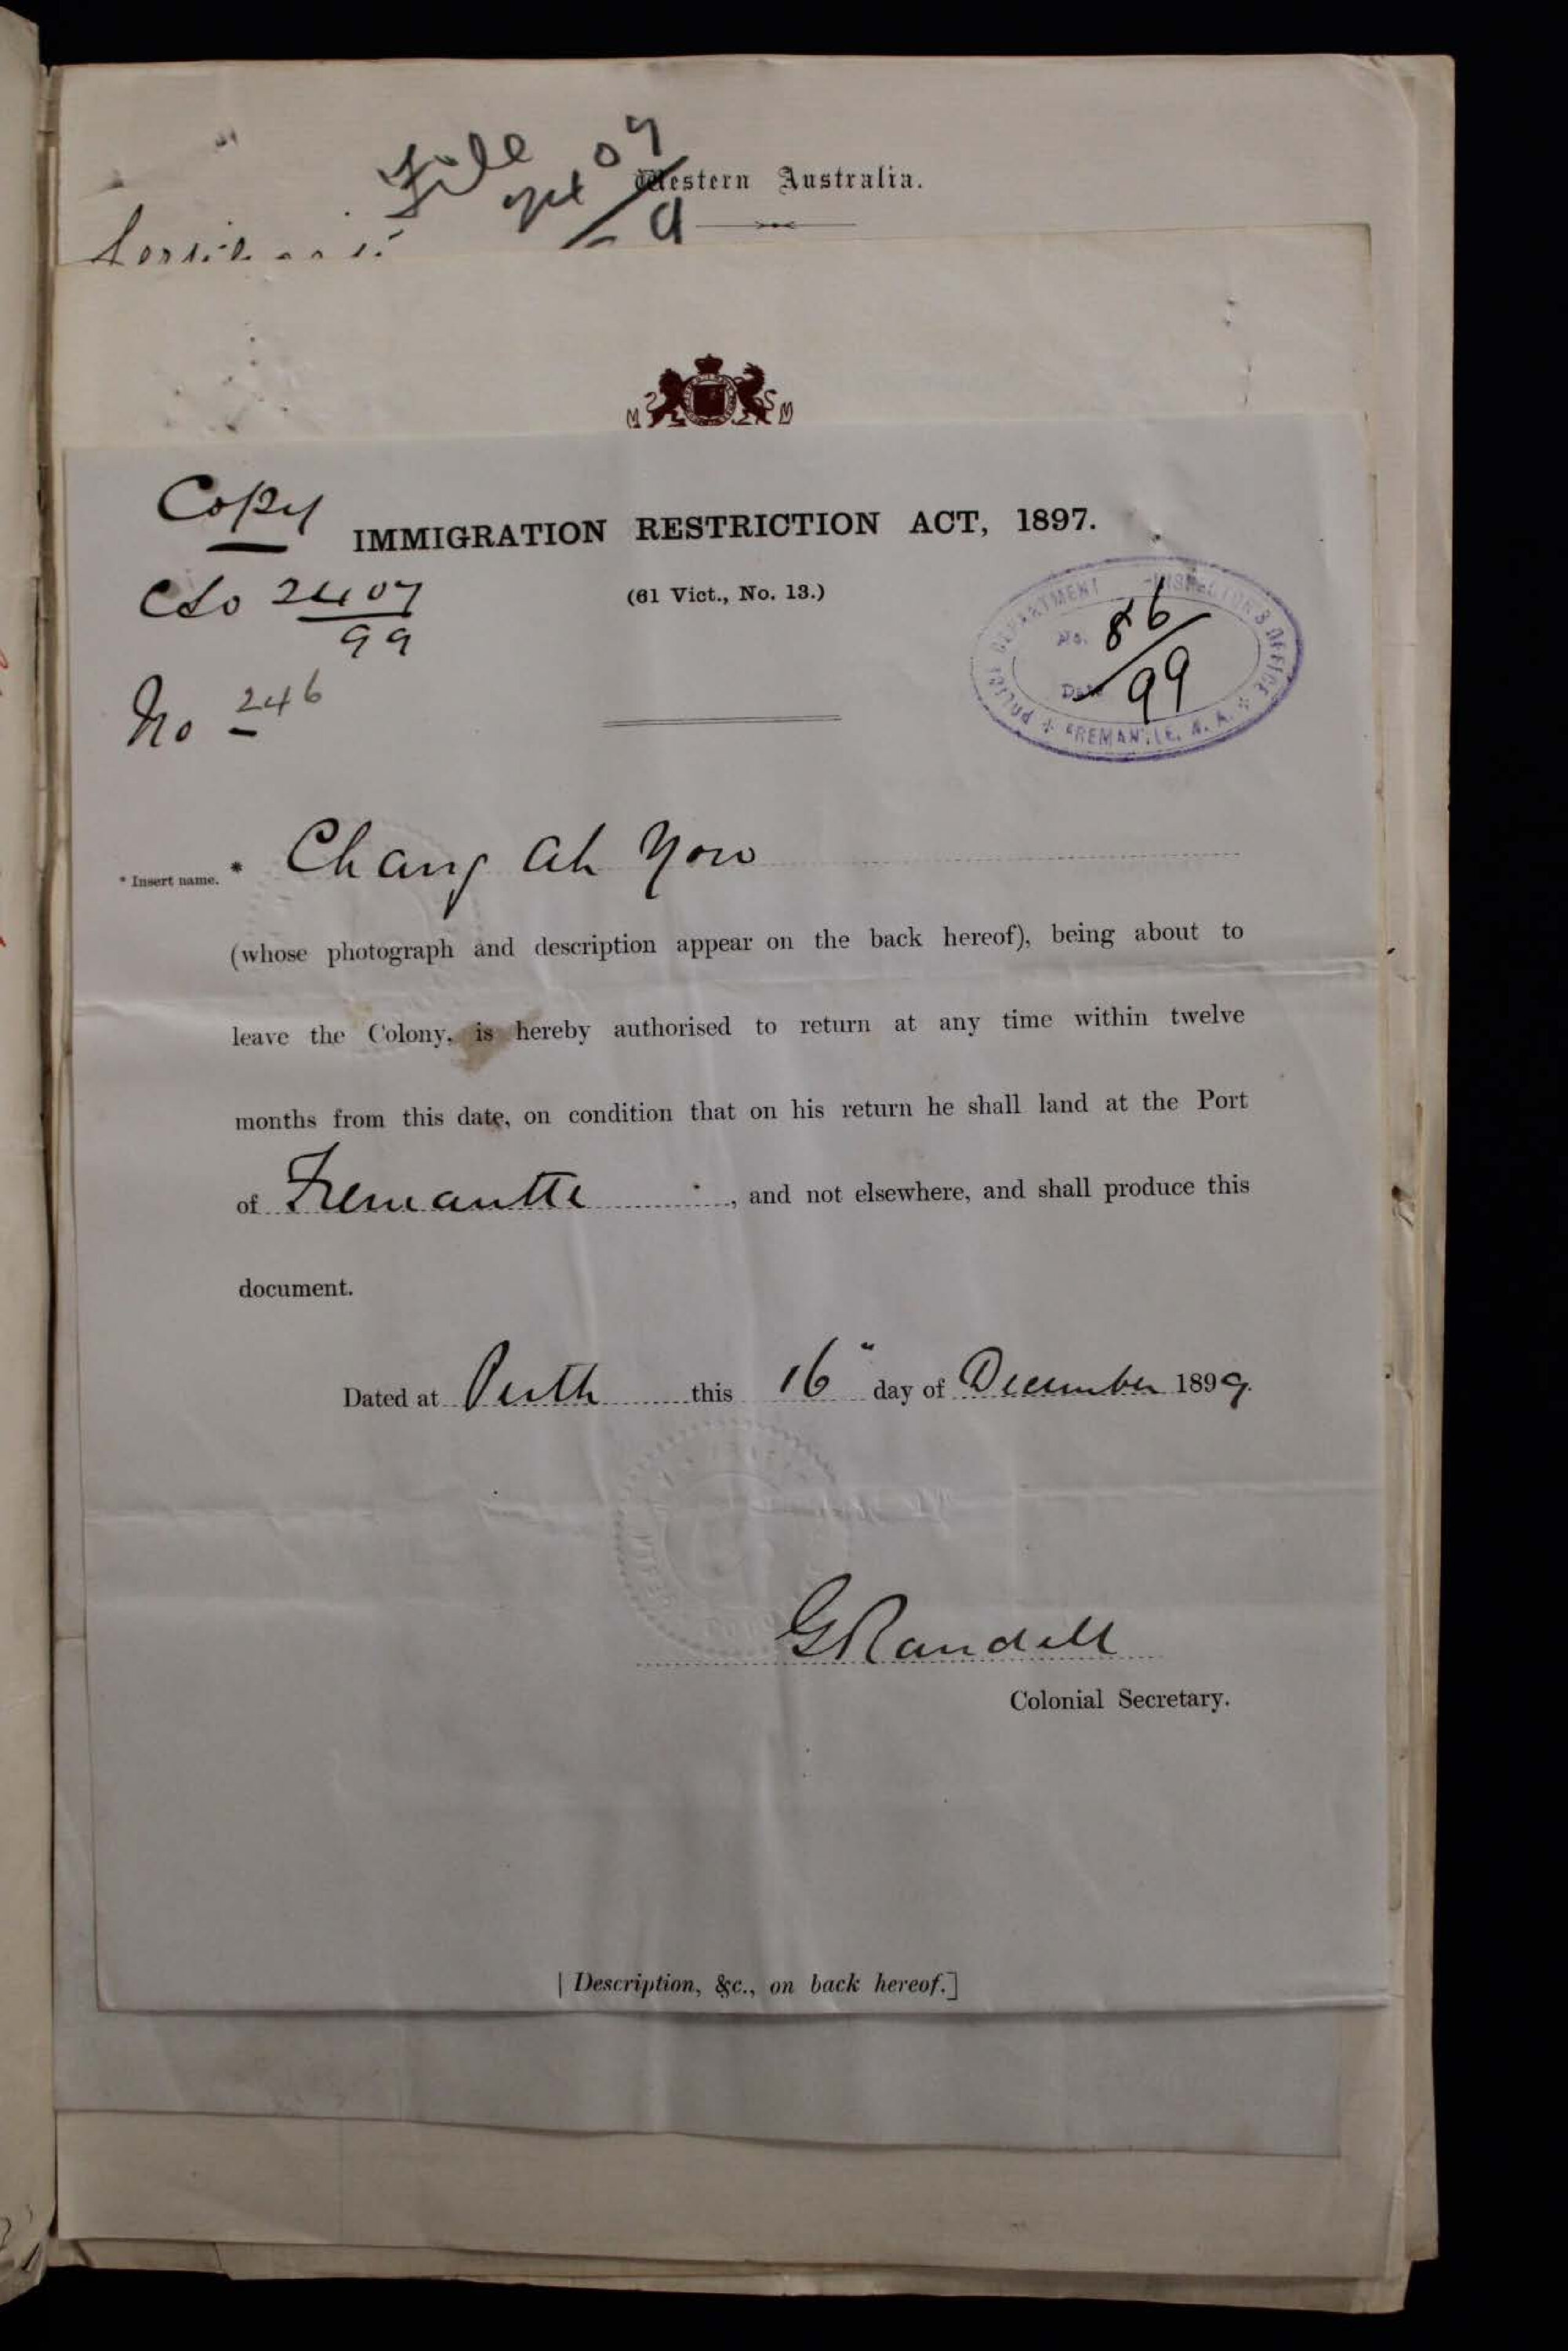 File
Western Australia.
Copy
IMMIGRATION RESTRICTION ACT, 1897.
(61 Vict., No. 13.)
CSO 2407
99
POLICE DEPARTMENT - INSPECTOR'S OFFICE
No. 86
Date 99
FREMANTLE, W. A.
No 246
* Insert name. * Chang Ah You
(whose photograph and description appear on the back hereof), being about to
leave the Colony, is hereby authorised to return at any time within twelve
months from this date, on condition that on his return he shall land at the Port
of Fremantle, and not elsewhere, and shall produce this
document.
Dated at Perth this 16" day of December 1899.
G Randell
Colonial Secretary.
[Description, &c., on back hereof.]